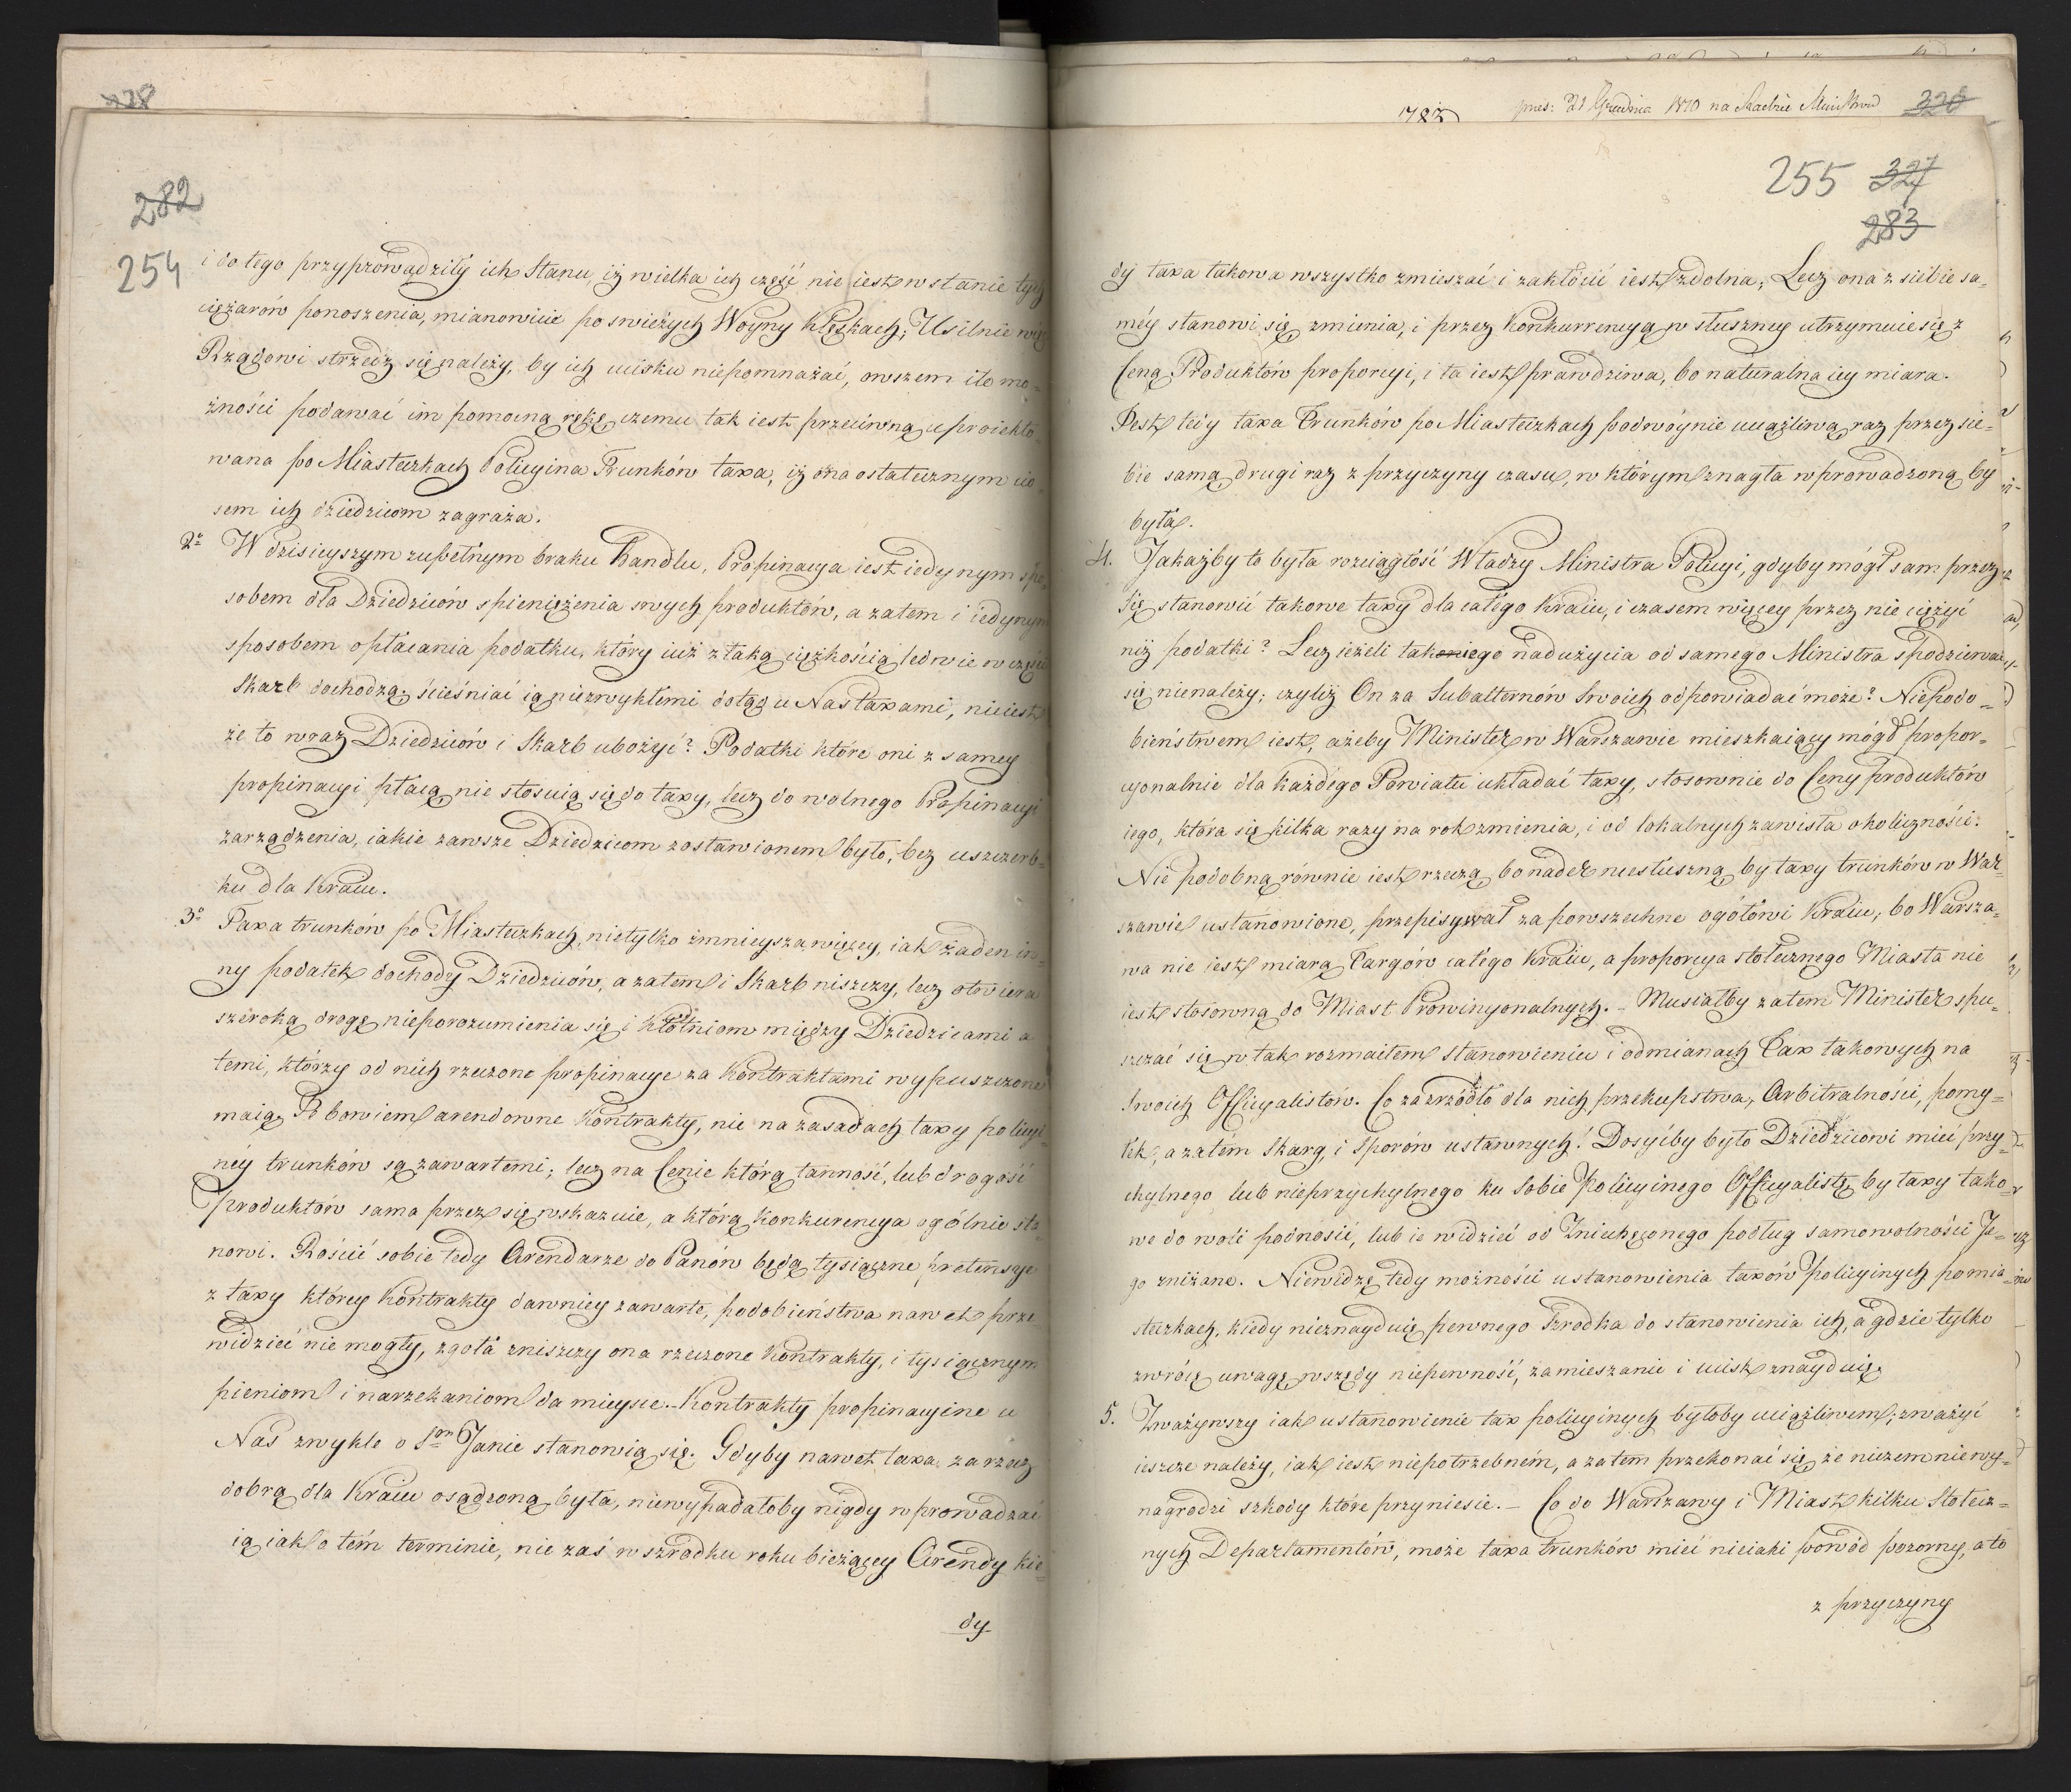 228
282
254
i do tego przyprowadziły ich Stanu, iż wielka ich część nie iest w stanie tych
ciężarów ponoszenia, mianowicie po swieżych Woyny klęskach; Usilnie więc
Rządowi strzedz się należy, by ich ucisku niepomnażać, owszem ile mo-
żności podawać im pomocną rękę, czemu tak iest przeciwną uproiekto-
wana po Miasteczkach Policyina Trunków taxa, iż ona ostatecznym cio-
sem ich dziedzicom zagraża.
2o W dzisieyszym zupełnym braku Handlu, Propinacya iest iedynym spo-
sobem dla Dziedziców spieniężenia swych produktów, a zatem i iedynym
sposobem opłacania podatku, który iuż z taką ciężkością ledwie w części
Skarb dochodzą; ścieśniać ią niezwykłemi dotąd u Nas taxami, nieiest
że to wraz Dziedziców i Skarb ubożyć? Podatki które oni z samey
propinacyi płacą nie stosuią się do taxy, lecz do wolnego Propinacyi
zarządzenia, iakie zawsze Dziedzicom zostawionem było, bez uszczerb-
ku dla Kraiu.
3o Taxa trunków po Miasteczkach, nietylko zmnieysza więcey, iak żaden in-
ny podatek dochody Dziedziców, a zatem i Skarb niszczy, lecz otwiera
szeroką drogę nieporozumienia się i kłótniom między Dziedzicami a
temi, którzy od nich rzeczone propinacye za Kontraktami wypuszczone
maią. Te bowiem arendowne Kontrakty, nie na zasadach taxy policyi-
ney trunków są zawartemi; lecz na Cenie którą tanność, lub drogość
produktów sama przez się wskazuie, a którą konkurencya ogólnie sta-
nowi. Rościć sobie tedy Arendarze do Panów będą tysiączne pretensye
z taxy którey Kontrakty dawniey zawarte, podobieństwa nawet prze-
widzieć nie mogły, zgoła zniszczy ona rzeczone Kontrakty, i tysiącznym
pieniom i narzekaniom da mieysce. - Kontrakty propinacyine u
Nas zwykle o Sm Janie stanowią się. Gdyby nawet taxa za rzecz
dobrą dla Kraiu osądzoną była, niewypadałoby nigdy wprowadzać
ią iak o tém terminie, nie zaś w szrodku roku bieżącey Arendy kie-
dy
1782
pres: 21 Grudnia 1810 na Radzie Ministrów
326
255 327
283
dy taxa takowa wszystko zmieszać i zakłócić iest zdolna; Lecz ona z siebie sa-
méy stanowi się zmienia, i przez Konkurrencyą w słuszney utrzymuie się z
Ceną Produktów proporcyi, i ta iest prawdziwa, bo naturalna iey miara.
Jest tedy taxa Trunków po Miasteczkach podwóynie uciążliwą, raz przez sie-
bie samą, drugi raz z przyczyny czasu, w którym znagła wprowadzoną by
była.
4. Jakażby to była rozciągłość Władzy Ministra Policyi, gdyby mógł sam przez
się stanowić takowe taxy dla całego Kraiu, i czasem więcey przez nie ciężyć
niż podatki? Lecz ieżeli takowego nadużycia od samego Ministra spodziewać
się nienależy; czyliż On za Subalternów Swoich odpowiadać może? Niepodo-
bieństwem iest, ażeby Minister w Warszawie mieszkaiący mógł propor-
cyonalnie dla każdego Powiatu układać taxy, stosownie do Ceny produktów
iego, która się kilka razy na rok zmienia, i od lokalnych zawisła okoliczności.
Nie podobną równie iest rzeczą, bo nader niesłuszną, by taxy trunków w War-
szawie ustanowione, przepisywał za powszechne ogółowi Kraiu, bo Warsza-
wa nie iest miarą Targów całego Kraiu, a proporcya stołecznego Miasta nie
iest stosowną do Miast Prowincyonalnych. - Musiałby zatem Minister spu-
szczać się w tak rozmaitem stanowieniu i odmianach Tax takowych na
Swoich Officyalistów. Co za źrzódło dla nich przekupstwa, Arbitralności, pomy-
łek, a zatém Skarg, i Sporów ustawnych! Dosyćby było Dziedzicowi mieć przy-
chylnego lub nieprzychylnego ku Sobie Policyinego Officyalistę, by taxy tako-
we do woli podnosić, lub ie widzieć od Zniechęconego podług samowolności Je-
go zniżane. Niewidzę tedy możności ustanowienia taxów Policyinych po mia-
steczkach, kiedy nieznayduię pewnego szrodka do stanowienia ich, a gdzie tylko
zwrócę uwagę, wszędy niepewność, zamieszanie i ucisk znayduię.
5. Zważywszy iak ustanowienie tax policyinych byłoby uciążliwem; zważyć
ieszcze należy, iak iest niepotrzebném, a zatem przekonać się, że niczem niewy-
nagrodzi szkody które przyniesie. - Co do Warszawy i Miast kilku Stołecz-
nych Departamentów, może taxa trunków mieć nieiaki powód pozorny, a to
z przyczyny